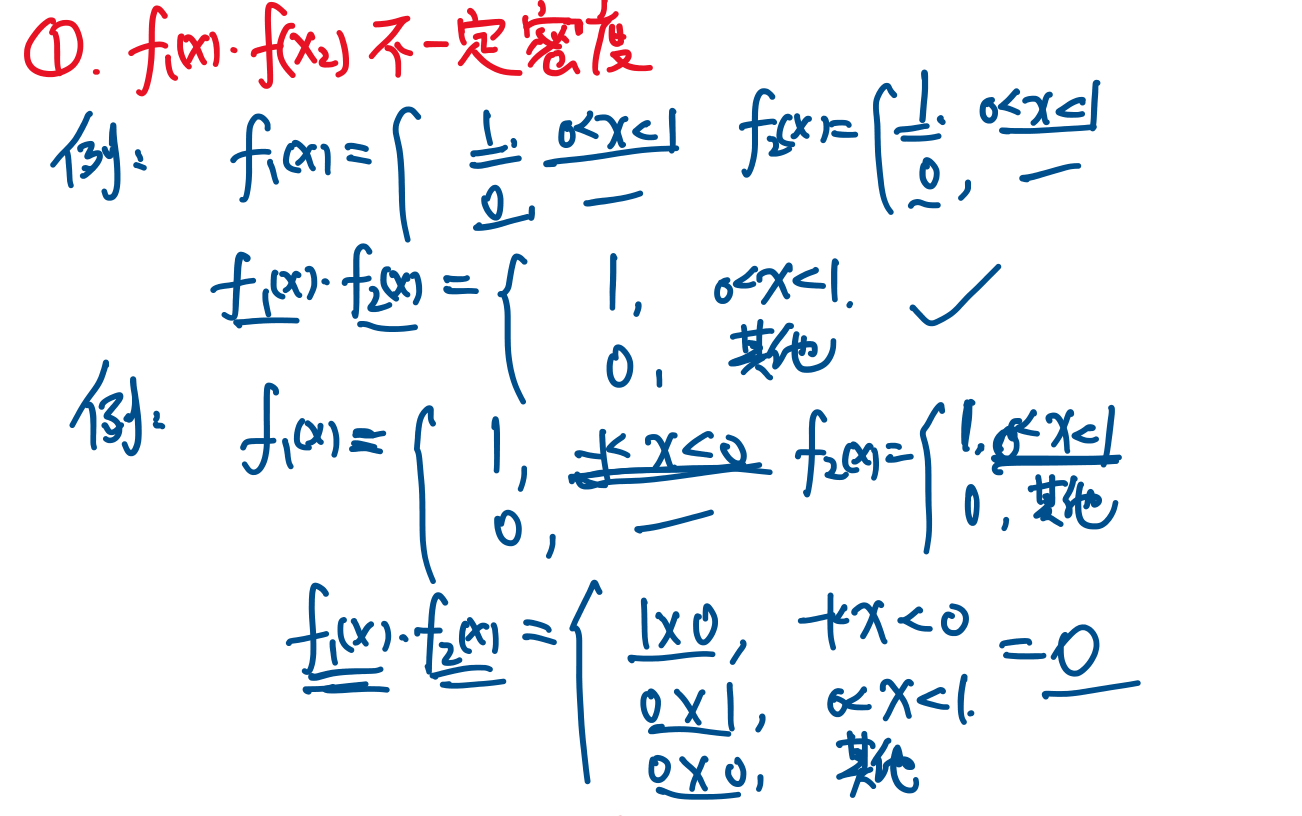 ①. f₁(x)·f(x₂) 不一定密度
例: f₁(x) = { 1. 0<x<1 f₂(x) = { 1. 0<x<1
0, — 0, —
f₁(x)·f₂(x) = { 1, 0<x<1. ✓
0, 其他
例: f₁(x) = { 1, -1<x<0 f₂(x) = { 1. 0<x<1
0, — 0, 其他
f₁(x)·f₂(x) = { 1×0, -1<x<0 = 0
0×1, 0<x<1.
0×0, 其他